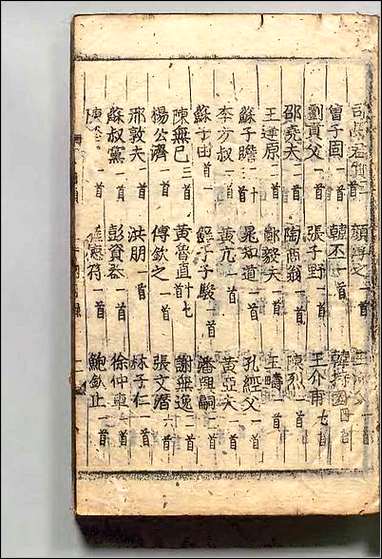 司馬君實 首 顔 之
曾子固一首 韓丕一首 韓持國四首
劉貢父一首 張子野一首 王介甫七首
邵堯夫一首 陶商翁一首 陳烈一首
王逢原一首 鄭毅夫一首 王疇一首
蘇子瞻二十首 晁知道一首 孔經父一首
李方叔一首 黄亢一首 黄亞夫一首
蘇子由一首 鮮于子駿一首 潘興嗣二首
陳無己三首 黄魯直十七首 謝無逸二首
楊公濟一首 傅欽之一首 張文潛六首
邢敦夫一首 洪朋一首 林子仁一首
蘇叔黨一首 彭資 一首 徐仲車二首
陳 一首 應符一首 鮑欽止一首